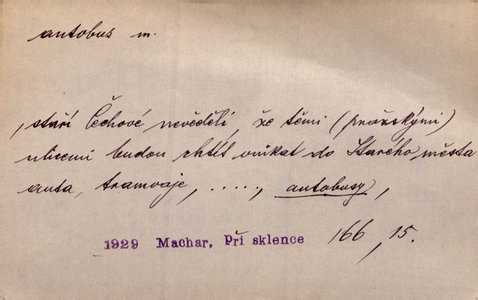 autobus m.
, staří Čechové nevěděli, že těmi (pražskými)
ulicemi budou chtět vnikat do Starého města
auta, tramvaje, ....., autobusy,
1929 Machar, Při sklence 166, 15.